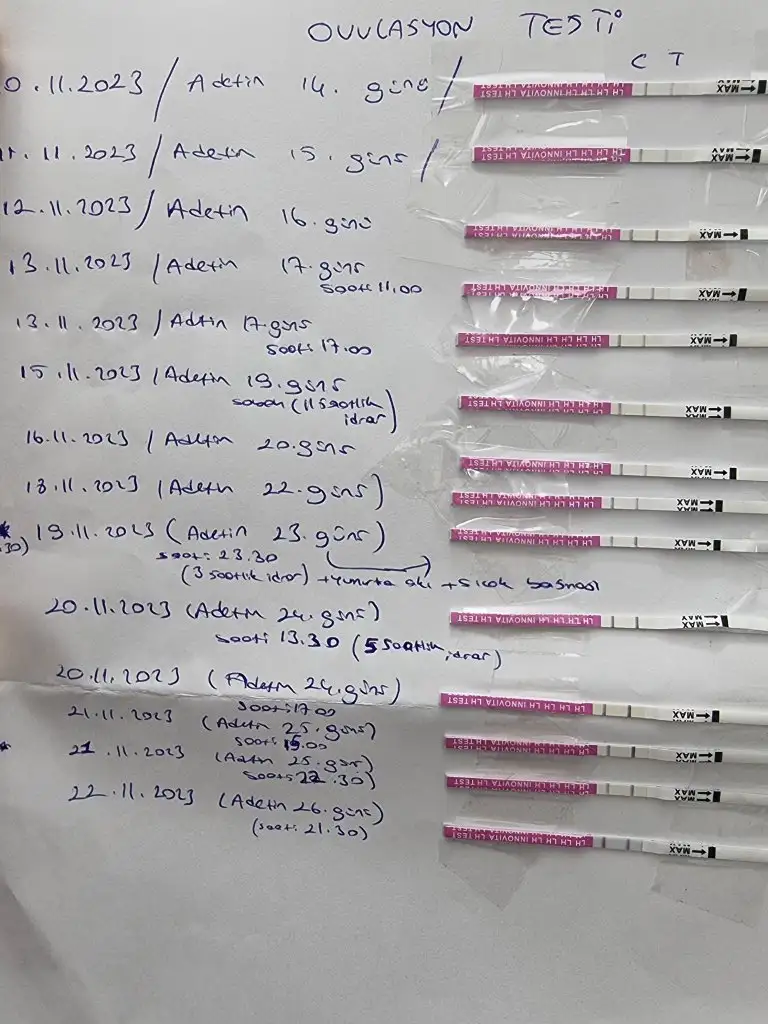 OVULASYON TESTİ
C T
0.11.2023 / Adetin 14. günü /
11.11.2023 / Adetin 15. günü /
12.11.2023 / Adetin 16. günü
13.11.2023 / Adetin 17. günü
saati 11.00
13.11.2023 / Adtin 17. günü
saati 17.00
15.11.2023 / Adetin 19. günü
sabah (11 saatlik idrar)
16.11.2023 / Adetin 20. günü
18.11.2023 (Adetin 22. günü)
19.11.2023 (Adetin 23. günü)
.30)
saat: 23.30
(3 saatlik idrar) + yumurta akı + sıcak basması
20.11.2023 (Adetin 24. günü)
saati 13.30 (5 saatlik idrar)
20.11.2023 (Adetin 24. günü)
saati 17.00
21.11.2023 (Adetin 25. günü)
saati 15.00
21.11.2023 (Adetin 25. gün)
saati 22.30)
22.11.2023 (Adetin 26. günü)
(saati 21.30)
LH LH LH LH INNOVITA LH LH TEST
MAX
LH LH LH LH INNOVITA LH LH TEST
MAX
LH LH LH LH INNOVITA LH LH TEST
MAX
LH LH LH LH INNOVITA LH LH TEST
MAX
LH LH LH LH INNOVITA LH LH TEST
MAX
LH LH LH LH INNOVITA LH LH TEST
MAX
LH LH LH LH INNOVITA LH LH TEST
MAX
LH LH LH LH INNOVITA LH LH TEST
MAX
LH LH LH LH INNOVITA LH LH TEST
MAX
LH LH LH LH INNOVITA LH LH TEST
MAX
LH LH LH LH INNOVITA LH LH TEST
MAX
LH LH LH LH INNOVITA LH LH TEST
MAX
LH LH LH LH INNOVITA LH LH TEST
MAX
LH LH LH LH INNOVITA LH LH TEST
MAX